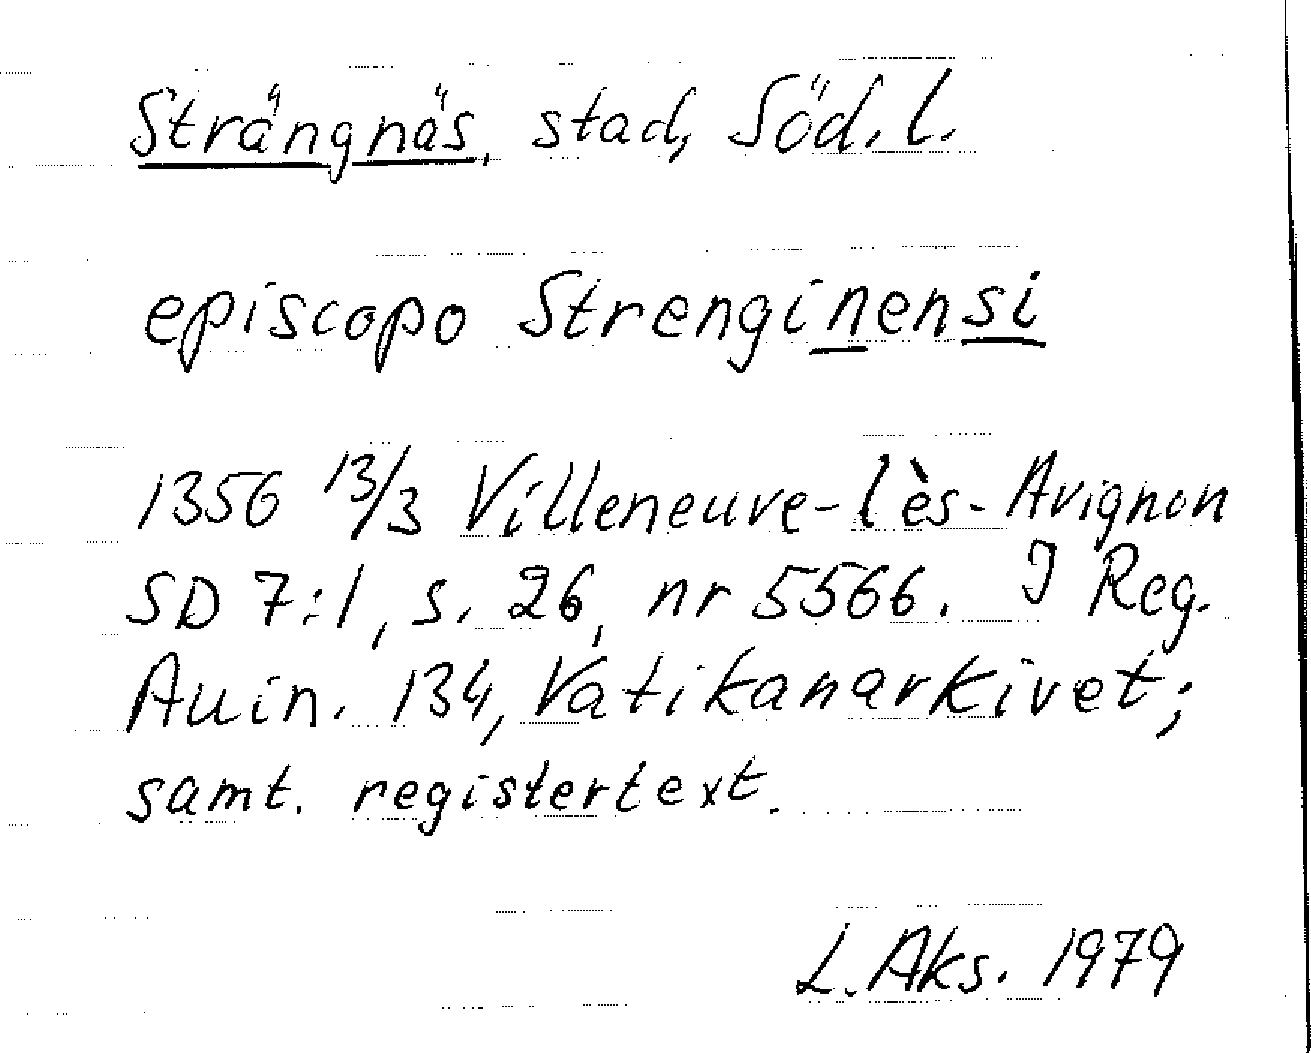 Strängnäs, stad, Söd. l.
episcopo Strenginensi
1356 13/3 Villeneuve-lès-Avignon
SD 7:1, s. 26, nr 5566. I Reg.
Auin. 134, Vatikanarkivet;
samt. registertext.
L. Aks. 1979